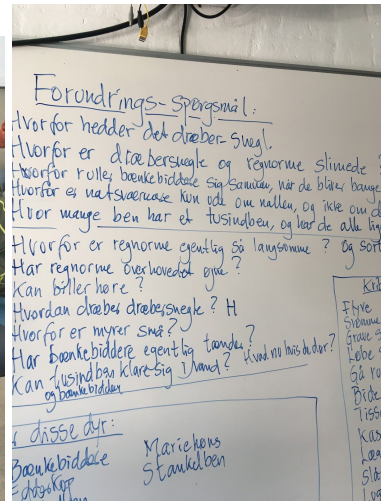 Forundrings-spørgsmål:
Hvorfor hedder det dræber-snegl.
Hvorfor er dræbersnegle og regnorme slimede
Hvorfor ruller bænkebiddere sig sammen, når de bliver bange
Hvorfor er natsværmere kun ude om natten, og ikke om d
Hvor mange ben har et tusindben, og har de alle lig
Hvorfor er regnorme egentlig så langsomme? og sort
Har regnorme overhovedet øjne?
Kan biller høre?
Hvordan dræber dræbersnegle? H
Hvorfor er myrer små?
Har bænkebiddere egentlig tænder?
Kan tusindben klare sig i vand? Hvad nu hvis de dør?
og bænkebidder
disse dyr:
Bænkebiddere
Edderkop
Mariehøns
Stankelben
Kri
Flyve
Svømme
Grave
Løbe
Gå
Bide
Tiss